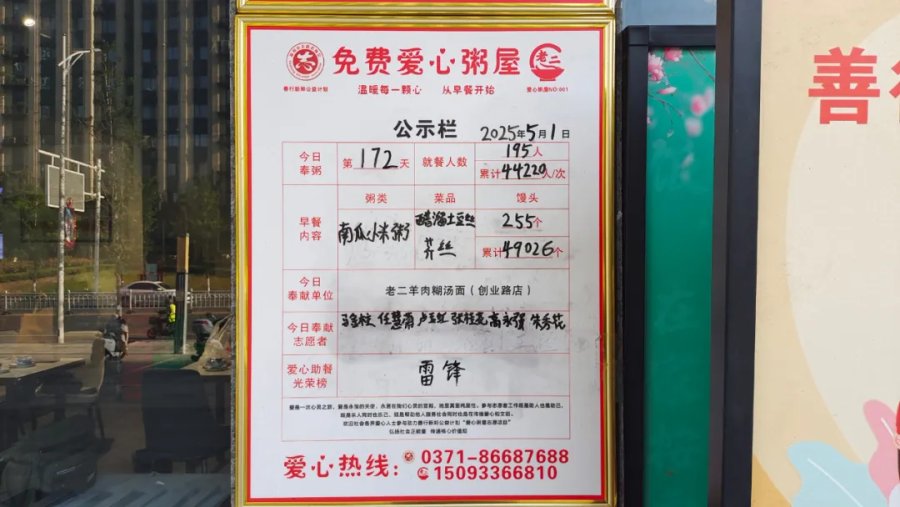 免费爱心粥屋
老二
善行助邻公益计划
温暖每一颗心 从早餐开始
爱心粥屋NO:001
公示栏 2025年5月1日
今日奉粥 第172天 就餐人数 195人
累计44220人/次
粥类 菜品 馒头
早餐内容 南瓜小米粥 醋溜土豆丝 芥丝 255个
累计49026个
今日奉献单位 老二羊肉糊汤面（创业路店）
今日奉献志愿者 任慧 张桂花 高永强 朱秀花
爱心助餐光荣榜 雷锋
弘扬社会正能量 传递核心价值观
爱心热线：0371-86687688
15093366810
善